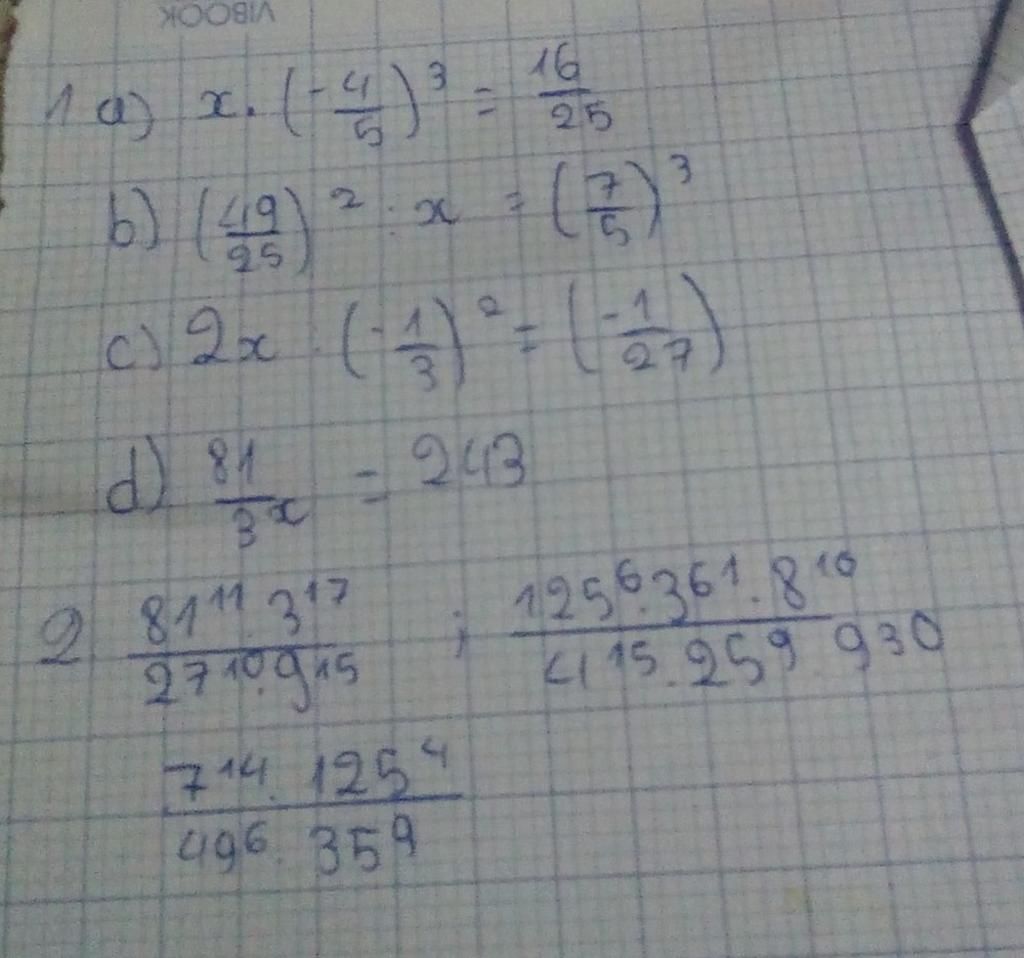 VIBOOK
1 a) x . (-4/5)³ = 16/25
b) (49/25)² . x = (7/5)³
c) 2x . (-1/3)² = (-1/27)
d) 81/3ˣ = 243
2 81¹¹ . 3¹⁷ / 27¹⁰ . 9¹⁵ ; 125⁶ . 3⁶¹ . 8¹⁰ / 4¹⁵ . 25⁹ . 9³⁰
7¹⁴ . 125⁴ / 49⁶ . 35⁹